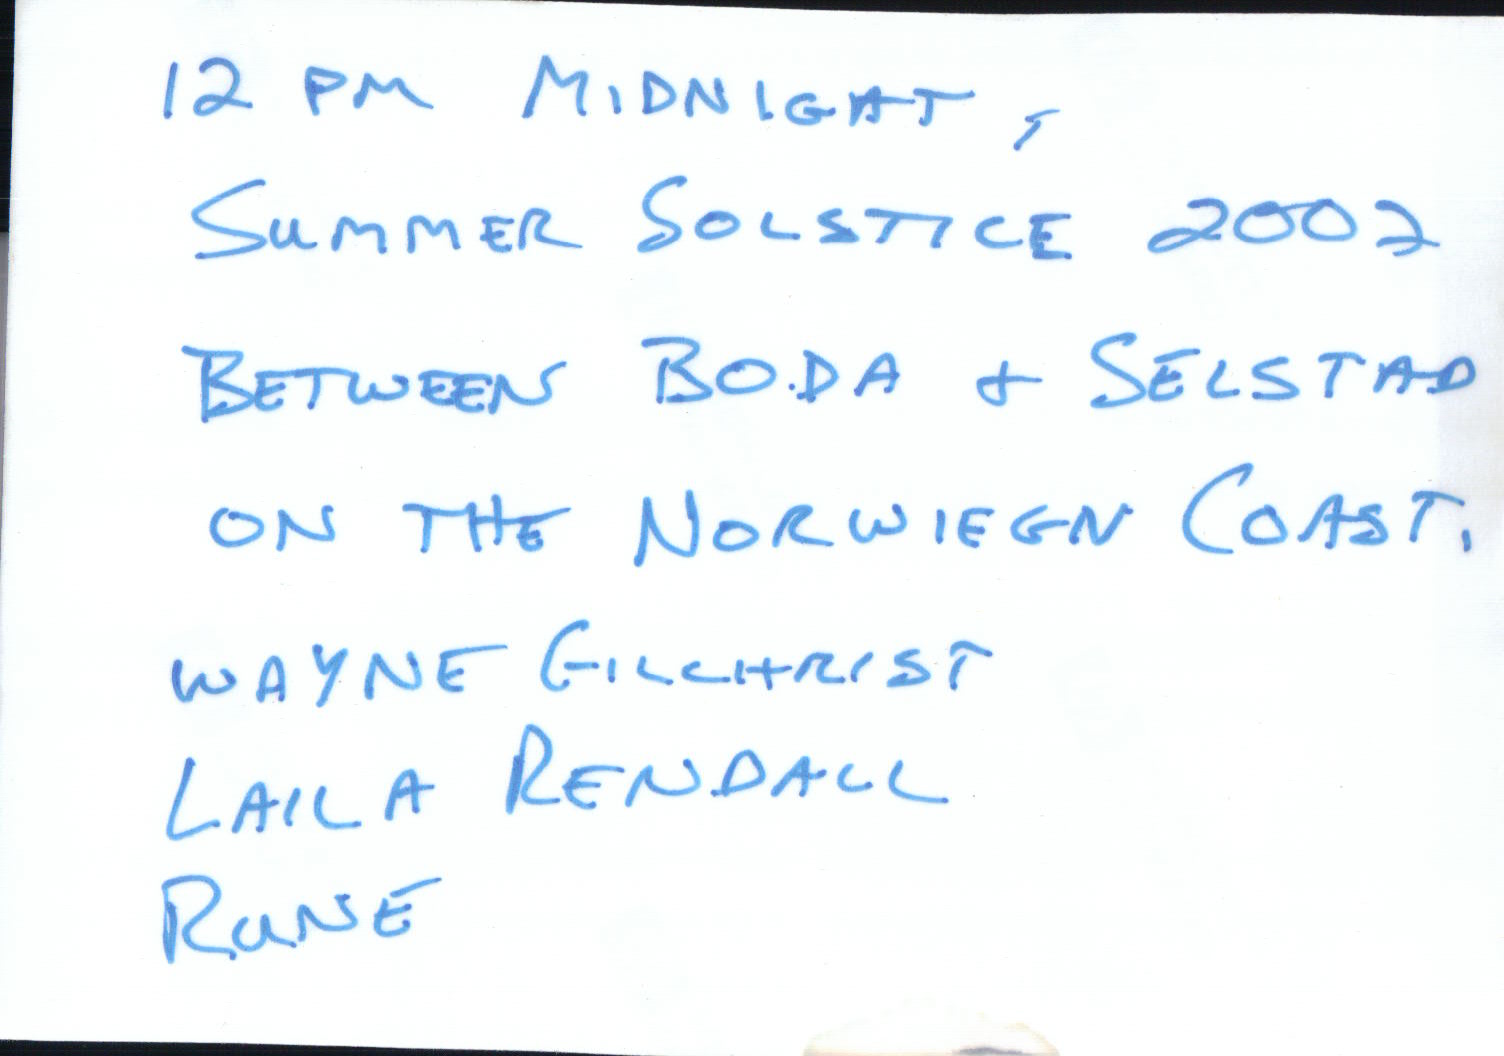 12 PM MIDNIGHT,
SUMMER SOLSTICE 2002
BETWEEN BODA & SELSTAD
ON THE NORWIEGN COAST.
WAYNE GILCHRIST
LAILA RENDALL
RUNE